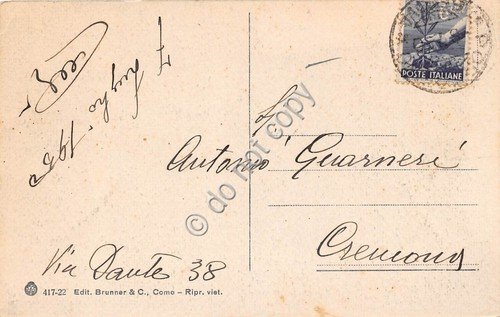 POSTE ITALIANE
7 Luglio 1950
Sig.
Antonio Guarneri
Cremona
Via Dante 38
417-22 Edit. Brunner & C., Como – Ripr. viet.
© do not copy